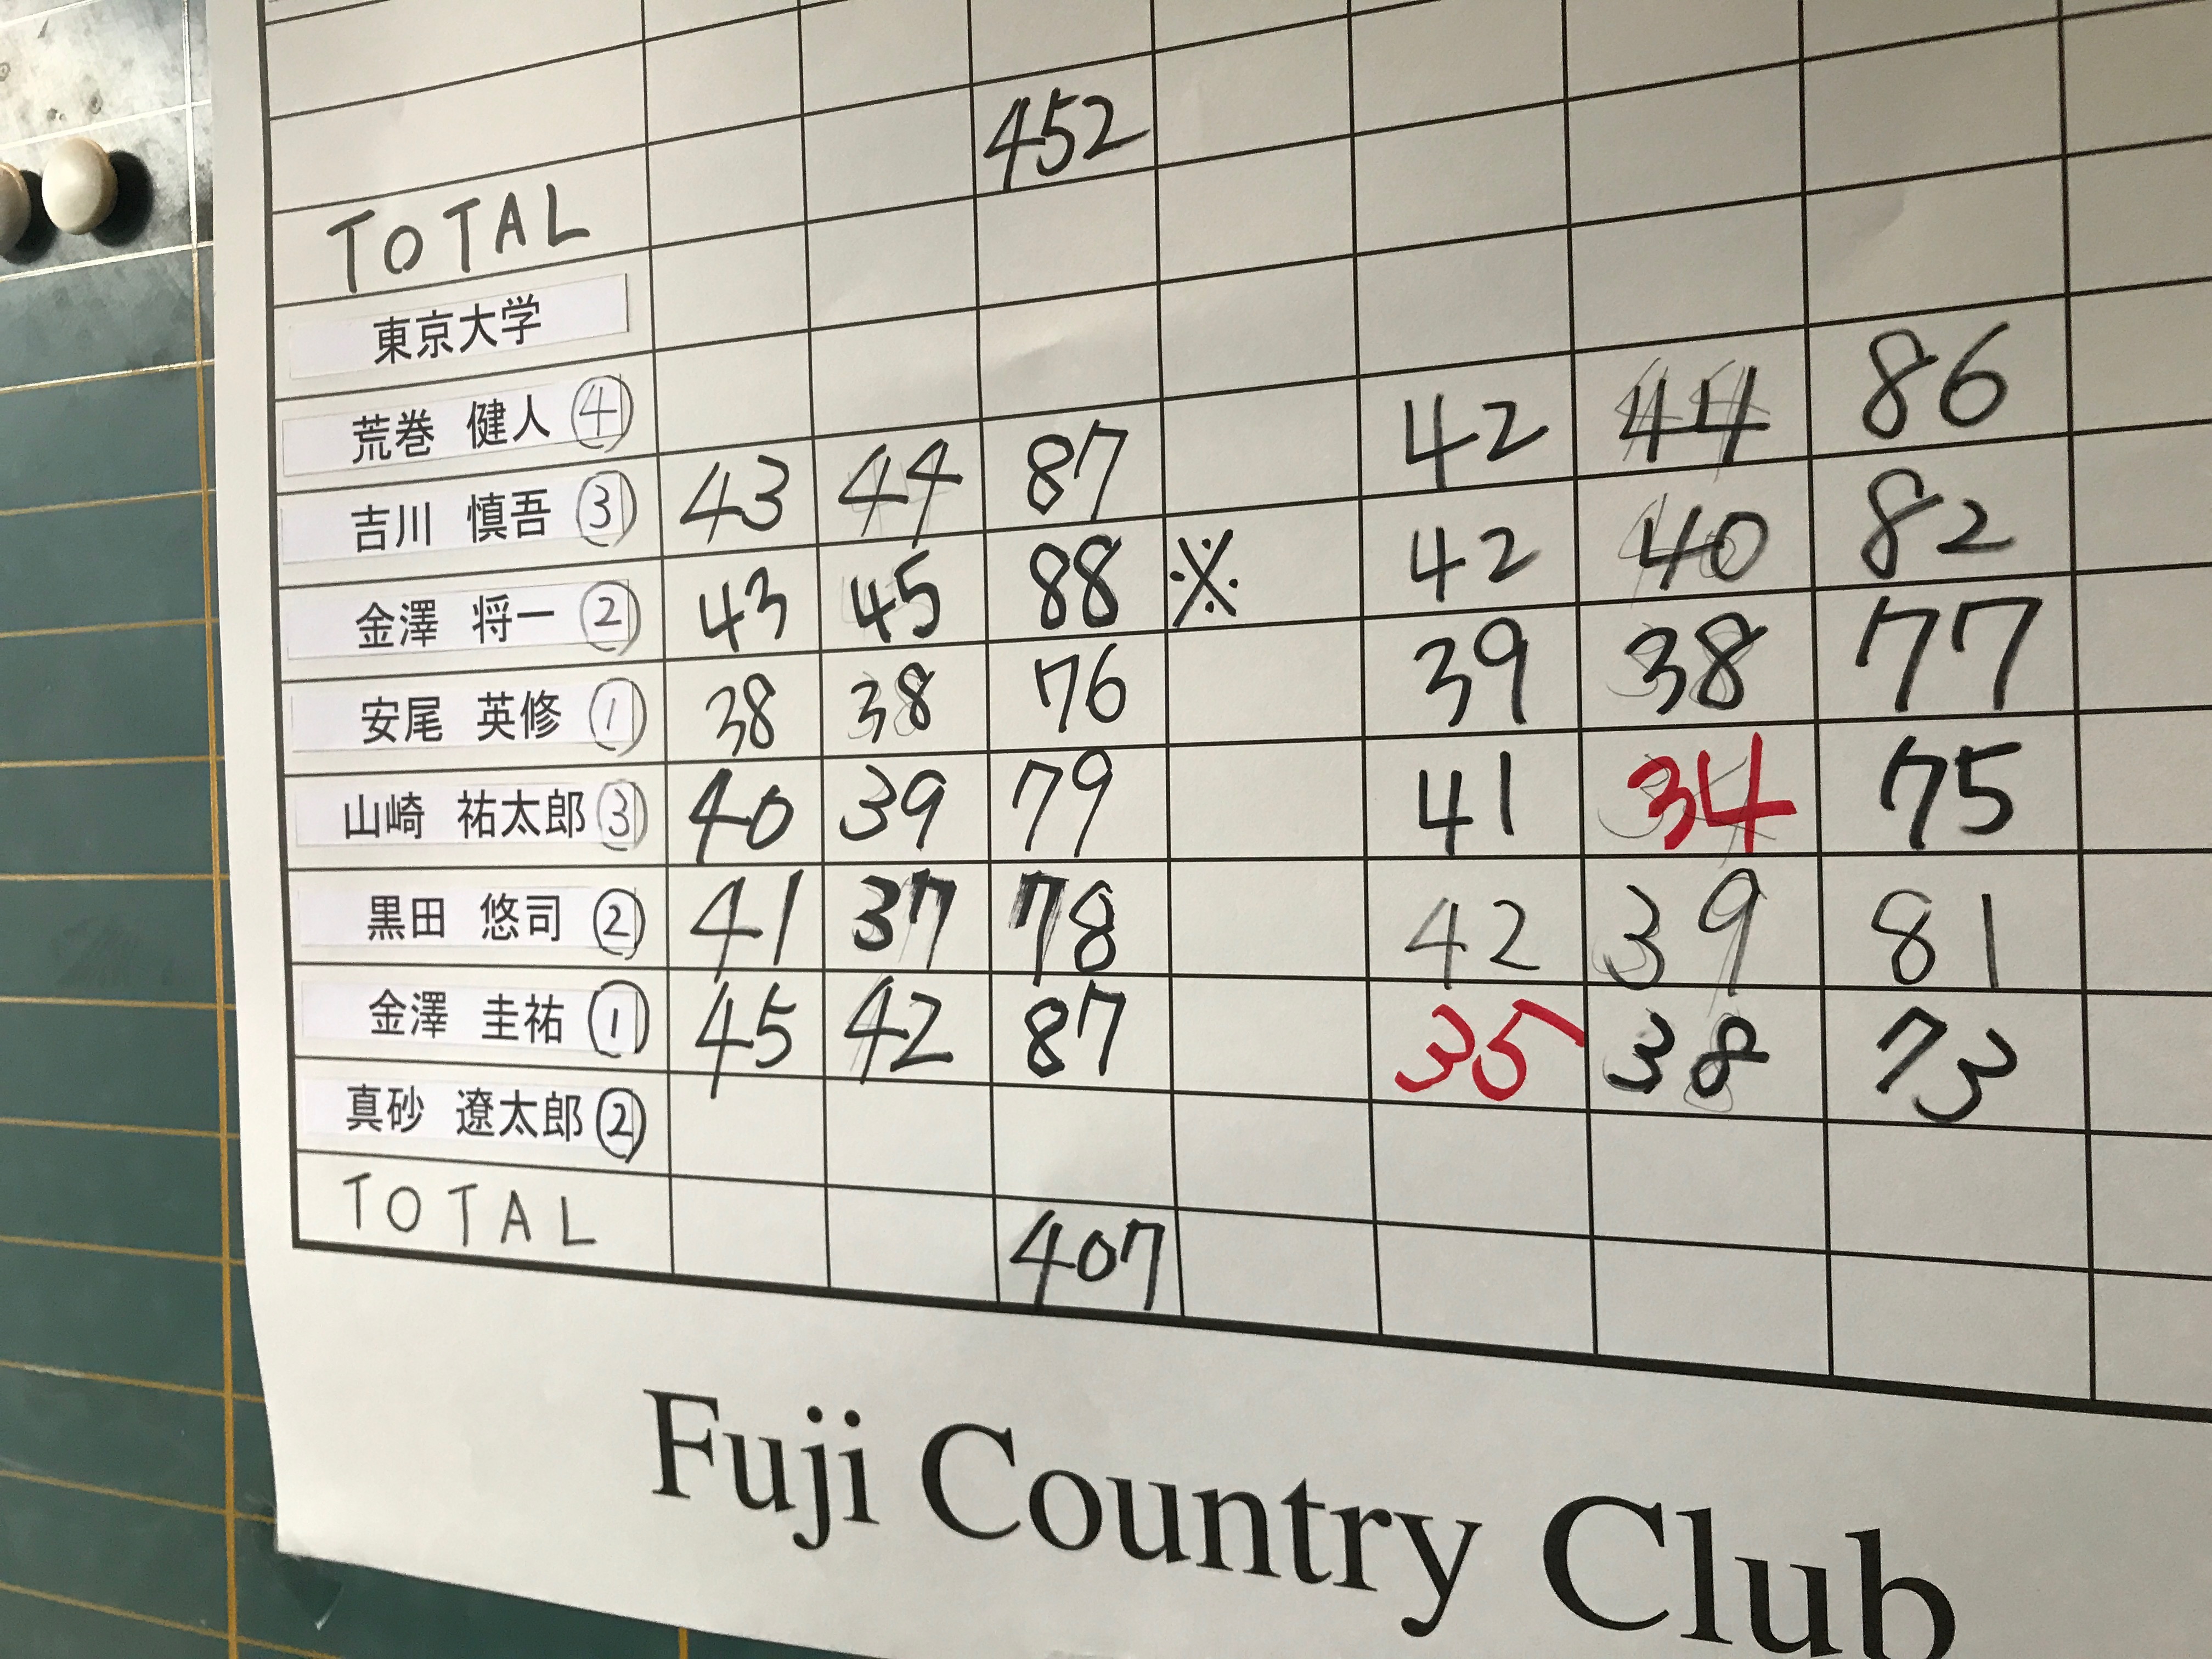 452
TOTAL 
東京大学
荒巻 健人 ④
吉川 慎吾 ③ 43 44 87 42 44 86
金澤 将一 ② 43 45 88 ※ 42 40 82
安尾 英修 ① 38 38 76 39 38 77
山崎 祐太郎 ③ 40 39 79 41 34 75
黒田 悠司 ② 41 37 78 42 39 81
金澤 圭祐 ① 45 42 87 35 38 73
真砂 遼太郎 ②
TOTAL 407
Fuji Country Club